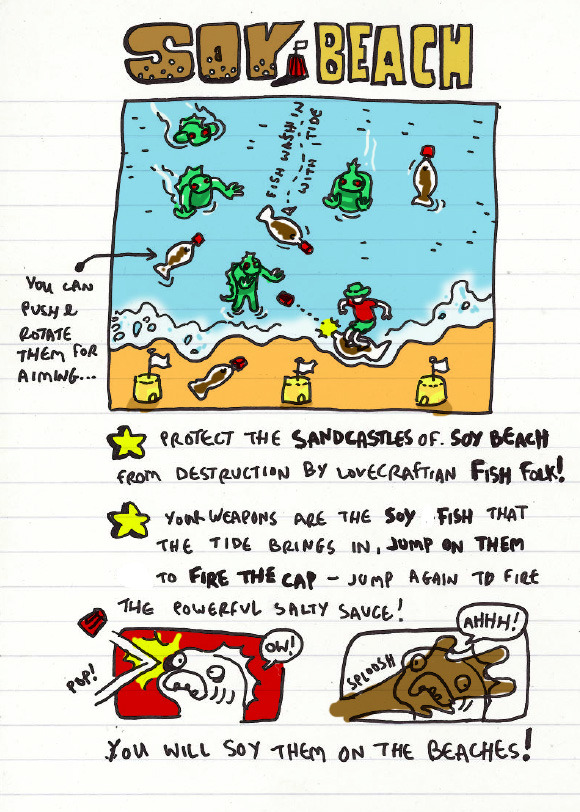 SOY BEACH
FISH WASH IN
WITH TIDE
YOU CAN
PUSH &
ROTATE
THEM FOR
AIMING...
PROTECT THE SANDCASTLES OF SOY BEACH
FROM DESTRUCTION BY LOVECRAFTIAN FISH FOLK!
YOUR WEAPONS ARE THE SOY FISH THAT
THE TIDE BRINGS IN, JUMP ON THEM
TO FIRE THE CAP - JUMP AGAIN TO FIRE
THE POWERFUL SALTY SAUCE!
POP!
OW!
SPLOOSH
AHHH!
YOU WILL SOY THEM ON THE BEACHES!